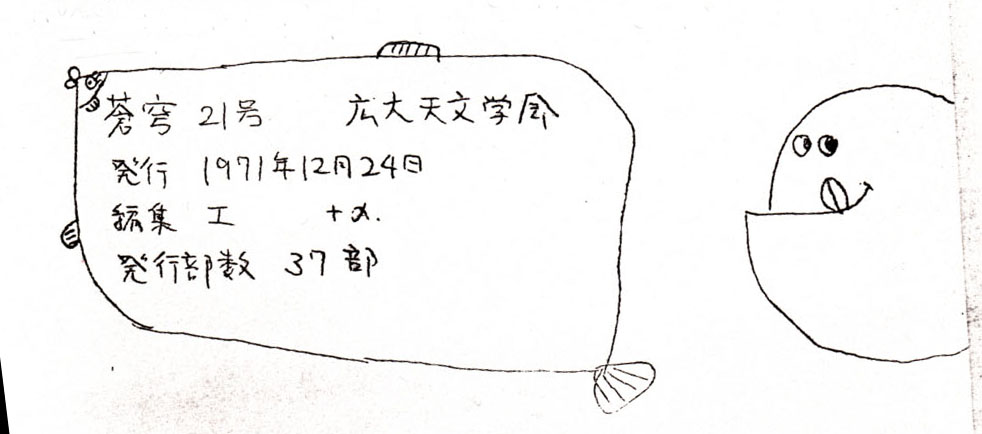 蒼穹 21号 広大天文学会
発行 1971年12月24日
編集 工 +α.
発行部数 37部